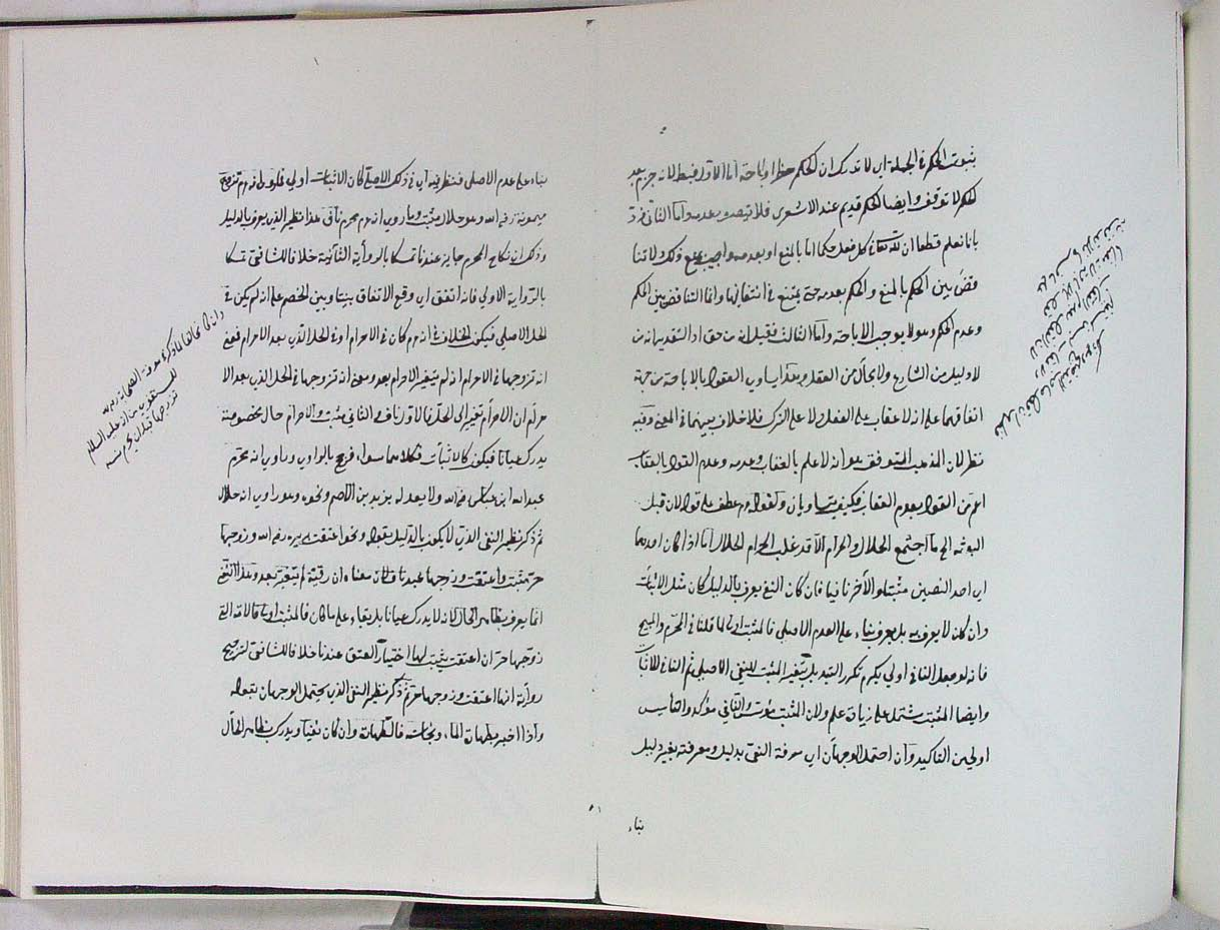 بثبوت الحكم في الجملة اي لا تدرك ان الحكم حظر او اباحة اما الاول فبط لانه جزم بعدم
الحكم لا توقف وايضا الحكم قديم عند الاشعري فلا يتصور عدمه واما الثاني فرد
بانا نعلم قطعا ان لله تعالى في كل فعل حكما اما بالمنع او بعدمه واجيب بمنع ذلك لا تنا
قض بين الحكم بالمنع والحكم بعدمه حتى يمتنع في انتفائهما وانما التناقض بين الحكم
وعدم الحكم وهو لا يوجب الاباحة واما الثالث فقيل انه حق اذ التقدير انه من
لا دليل من الشارع ولا مجال من العقل وهذا يساوي القول بالاباحة من جهة
اتفاقهما على انه لا عقاب على الفعل ولا على الترك فلا خلاف بينهما في المعنى وفيه
نظر لان المذهب المتوقف هو انه لا علم بالعقاب وعدمه وعدم القول بالعقاب
اعم من القول بعدم العقاب فكيف يتساويان ولقوله عم عطف على قوله لان قبل
البعثة الخ ما اجتمع الحلال والحرام الا قد غلب الحرام الحلال اما اذا كان احدهما
اي احد النصين مثبتا والآخر نافيا فان كان النفي يعرف بالدليل كان مثل الاثبات
وان كان لا يعرف به بل يعرف بناء على العدم الاصلي فالمثبت اولى لما قلنا في المحرم والمبيح
فانه لو جعل النافي اولى يلزم تكرر التبديل بتغير المثبت للنفي الاصلي ثم النافي للاثبات
وايضا المثبت يشتمل على زيادة علم ولان المثبت مؤسس والنافي مؤكد والتأسيس
اولى من التاكيد وان احتمل الوجهان اي معرفة النفي بدليل ومعرفته بغير دليل
بناء
بناء على عدم الاصلي فننظر فيه اي في ذلك الاصلي كان الاثبات اولى فلو روي انه عم تزوج
ميمونة رضي الله وهو حلال مثبت وما روي انه عم محرم نافي هذا نظير الذي يعرف بالدليل
وذلك ان نكاح المحرم جايز عندنا تمسكا بالرواية الثانية خلافا للشافعي تمسكا
بالرواية الاولى فانه اتفق اي وقع الاتفاق بيننا وبين الخصم على انه لم يكن في
الحل الاصلي فيكون الخلاف في انه عم كان في الاحرام او في الحل الذي بعد الاحرام فمعنى
انه تزوجها في الاحرام انه لم يتغير الاحرام بعد ومعنى انه تزوجها في الحل الذي بعد الا
حرام ان الاحرام تغير الى الحل فالاول ناف في الثاني مثبت والاحرام حال مخصوصة
يدرك عيانا فيكون كالاثبات فكلاهما سواء فرجح بالراوي وراوي انه محرم
عبد الله ابن عباس رضي الله ولا يعدله يزيد بن الاصم ونحوه وهو راوي انه حلال
ثم ذكر نظير النفي الذي لا يكون بالدليل بقوله ونحو اعتقت بريرة رضي الله وزوجها
حر مثبت واعتقت وزوجها عبد ناف لان معناه ان رقيته لم يتغير بعد وهذا النفي
انما يعرف بظاهر الحال لانه لا يدرك عيانا بل بقاء على ما كان فالمثبت اولى فالامة التي
زوجها حر ان اعتقت يثبت لها اختيار العتق عندنا خلافا للشافعي لترجيح
رواية انها اعتقت وزوجها حر ثم ذكر نظير النفي الذي يحتمل الوجهان بقوله
واذا اخبر بطهارة الماء ونجاسته فالطهارة وان كان نفيا ويدرك بظاهر الحال